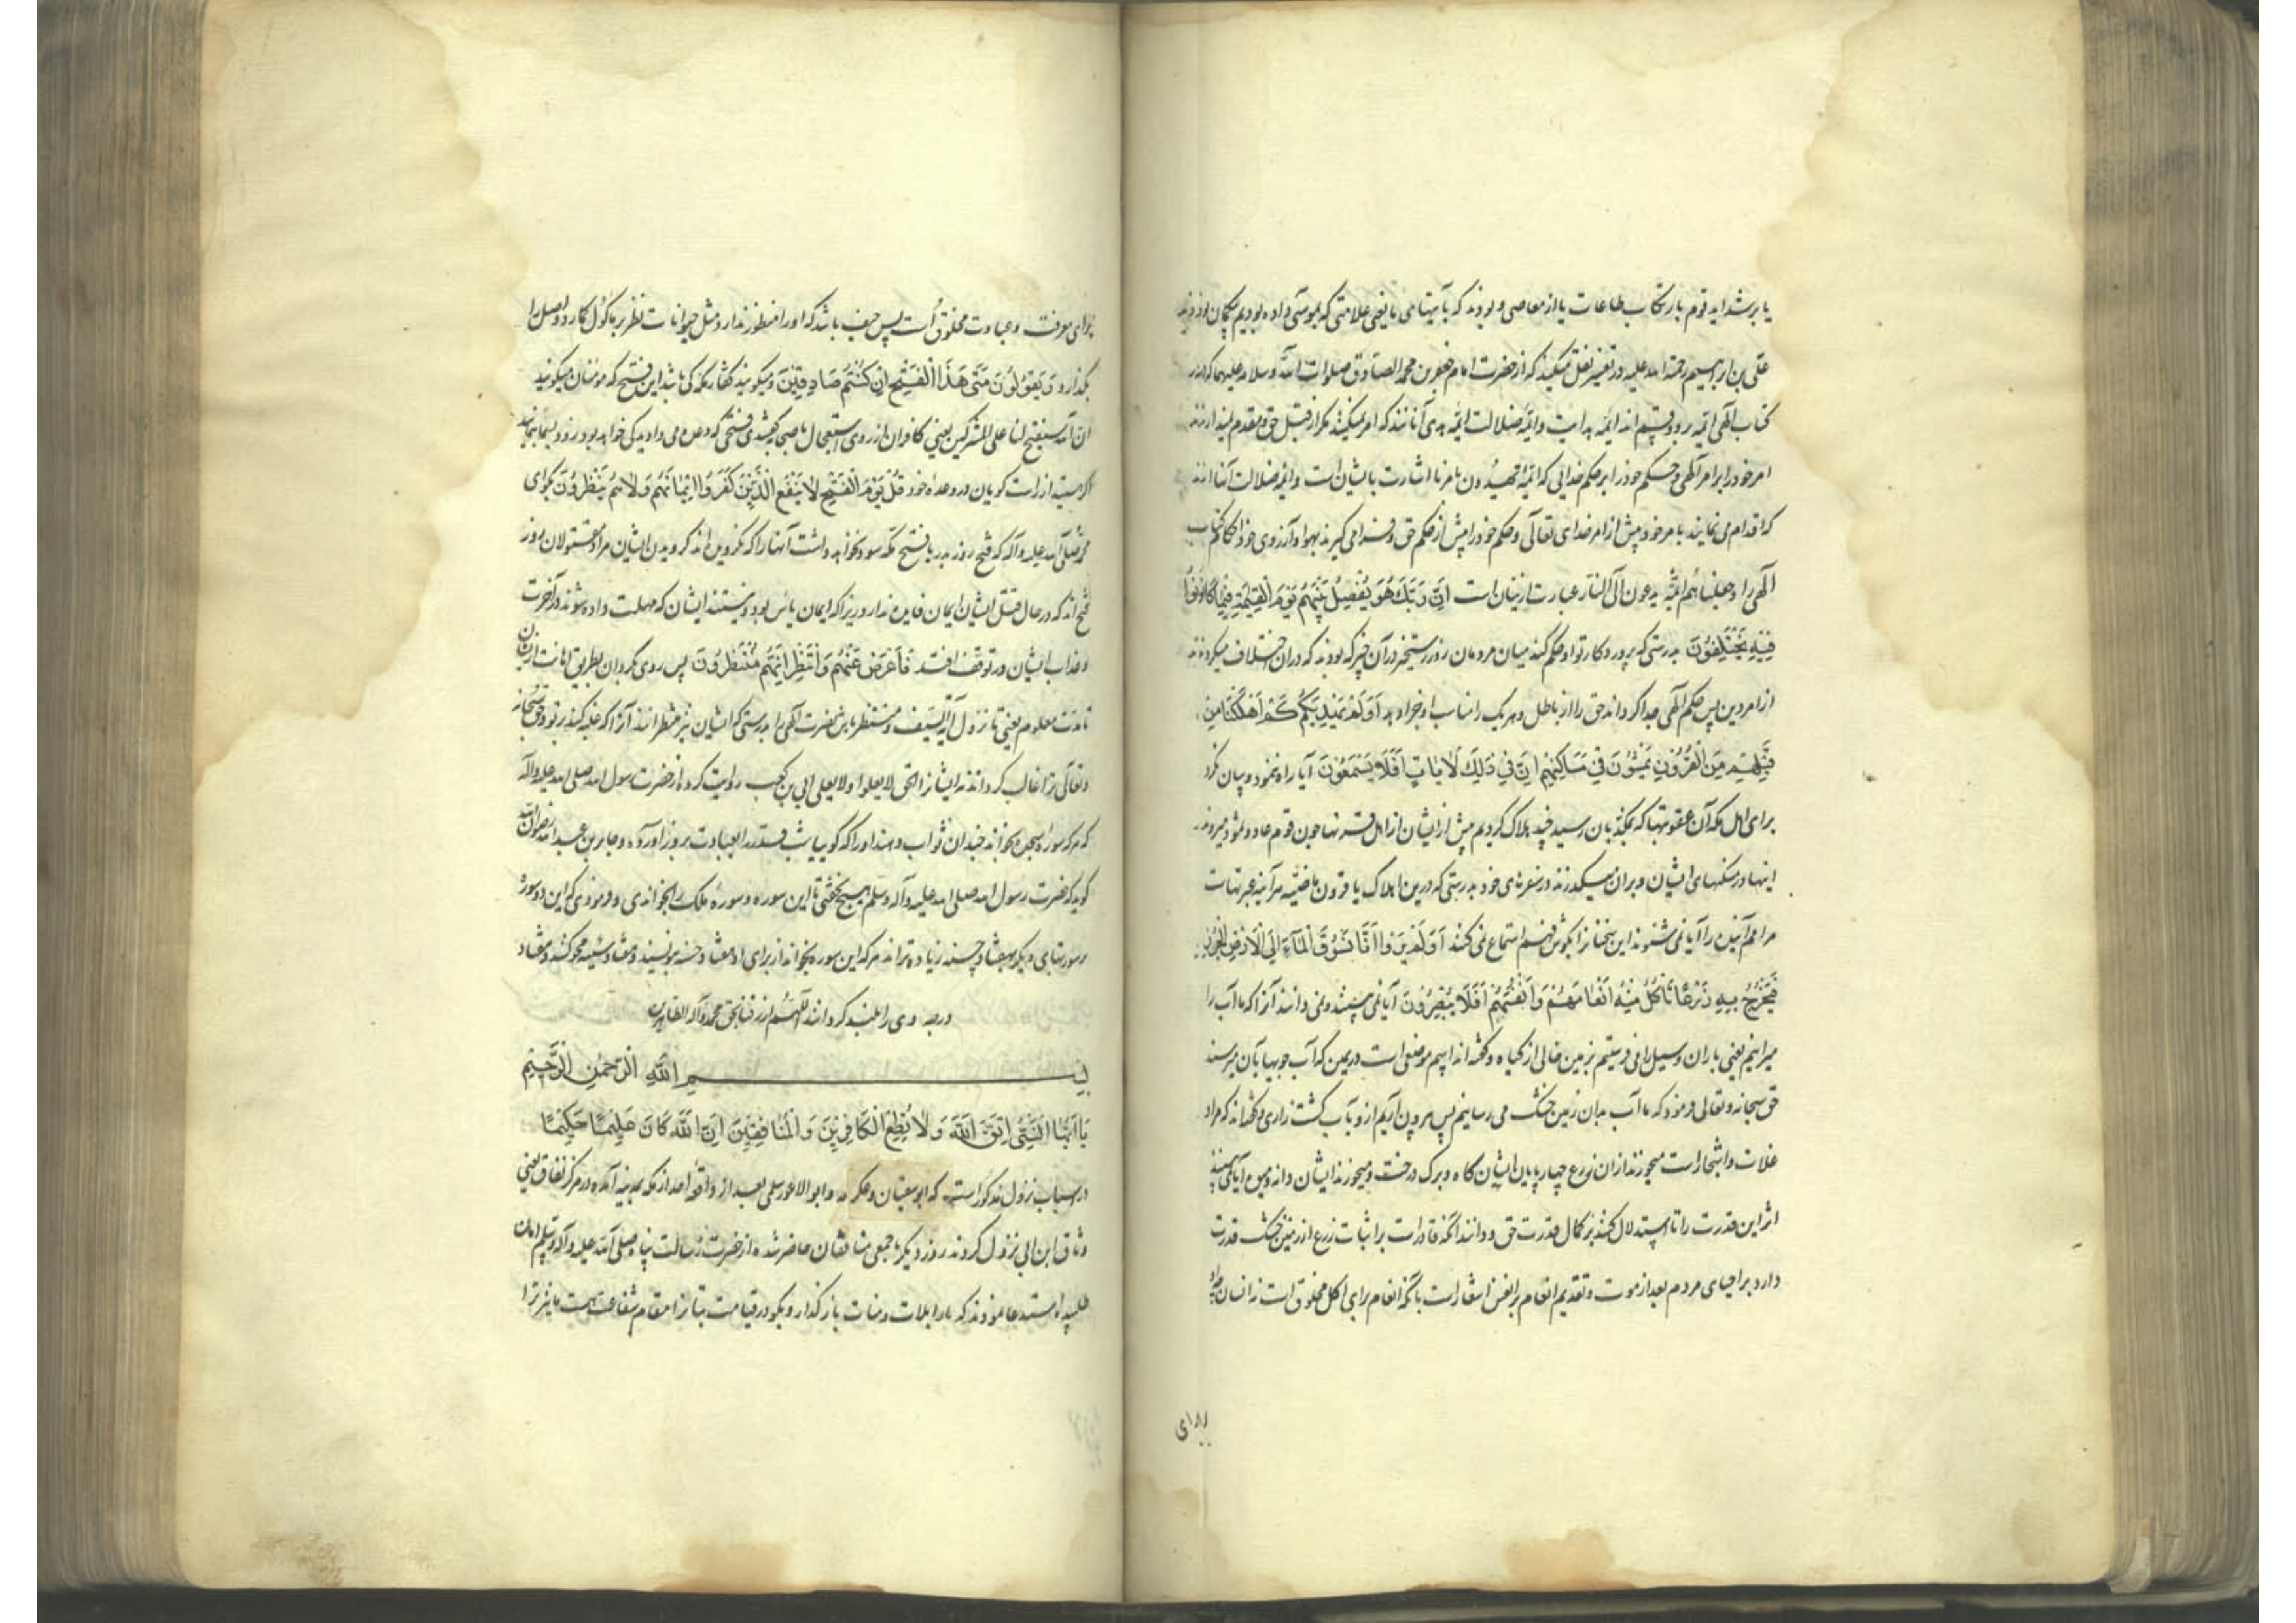 یا بر شداید قوم بارتکاب طاعات یا از معاصی و بودند که بآیتهای ما یعنی علامتی که بموسی داده بودیم بیکمان
علی بن ابرهیم رحمة الله علیه در تفسیر نقل میکند که از حضرت امام جعفر بن محمد الصادق صلوات الله و سلامه علیهما که در
کتاب الهی ائمه بر دو قسم اند ائمه هدایت و ائمه ضلالت ائمه هدی آنانند که امر نمیکنند مکر از قبل حق و مقدم میدارند
امر خود را بر امر آلهی و حکم خود را بر حکم خدایی که ائمة یهدون بامرنا اشارت بایشان است و ائمه ضلالت آنها اند
که اقدام می نمایند بامر خود پیش از امر خدای تعالی و حکم خود را پیش از حکم حق و فرا می کیرند بهوا و آرزوی خود احکام کتاب
الهی را و جعلناهم ائمة یدعون الی النار عبارت ازینان است اِنَّ رَبَّكَ هُوَ يَفْصِلُ بَيْنَهُمْ يَوْمَ الْقِيٰمَةِ فِيْمَا كَانُوْا
فِيْهِ يَخْتَلِفُوْنَ بدرستی که پرورد کار تو او حکم کند میان مردمان روز رستخیز در آن چیز که بودند که در ان اختلاف میکردند
از امر دین پس حکم الهی جدا کرداند حق را از باطل و هر یک را مناسب او جزا دهد اَوَلَمْ يَهْدِ لَهُمْ كَمْ اَهْلَكْنَا مِنْ
قَبْلِهِمْ مِنَ الْقُرُوْنِ يَمْشُوْنَ فِيْ مَسَاكِنِهِمْ اِنَّ فِيْ ذٰلِكَ لَاٰيَاتٍ اَفَلَا يَسْمَعُوْنَ آیا راه ننمود و بیان نکرد
برای اهل مکه آن عقوبتها که بمکذبان رسید چند هلاک کردیم پیش از ایشان از اهل قرنها چون قوم عاد و ثمود میروند
اینها در مسکنهای ایشان و بران میکذرند در سفرهای خود بدرستی که درین اهلاک یا قرون ماضیه هر آینه عبرتهاست
مر امم آینده را آیا نمی شنوند این سخنانرا بکوش فهم استماع نمی کنند اَوَلَمْ يَرَوْا اَنَّا نَسُوْقُ الْمَاۤءَ اِلَی الْاَرْضِ الْجُرُزِ
فَنُخْرِجُ بِهٖ زَرْعًا تَاْكُلُ مِنْهُ اَنْعَامُهُمْ وَاَنْفُسُهُمْ اَفَلَا يُبْصِرُوْنَ آیا نمی بینند و نمی دانند آنرا که ما آب را
میرانیم یعنی باران و سیل را می فرستیم بزمین خالی از کیاه و کفته اند اسم موضعی است در یمن که آب جویها بآن میرسند
حق سبحانه و تعالی فرمود که ما آب بدان زمین خشک می رسانیم پس بیرون آریم از و بآب کشت زاری و کفته اند که مراد
غلات و اشجار است میچرند از ان زرع چهار پایان ایشان کاه و برک درخت و میخورند ایشان دانه و میوه آیا نمی بینند
اثر این قدرت را تا استدلال کنند بر کمال قدرت حق و دانند آنکه قادر است بر اثبات زرع از زمین خشک قدرت
دارد بر احیای مردم بعد از موت و تقدیم انعام بر انفس اشعار است بآنکه انعام برای اکل مخلوق است نه انسان
برای معرفت و عبادت مخلوق است پس حیف باشد که او را منظور ندارد و مثل حیوانات نظر بر ماکول کمارد و اصل را
بکذارد وَ يَقُوْلُوْنَ مَتٰی هٰذَا الْفَتْحُ اِنْ كُنْتُمْ صَادِقِيْنَ و میکویند کفار مکه کی باشد این فتح که مومنان میکویند
ان الله سیفتح لنا علی المشرکین یعنی کافران از روی استعجال باصحاب کفتندی فتحی که وعده می دادید کی خواهد بود زود بما بنمایید
اکر هستید از راست کویان در وعدهٔ خود قُلْ يَوْمَ الْفَتْحِ لَا يَنْفَعُ الَّذِيْنَ كَفَرُوْا اِيْمَانُهُمْ وَلَا هُمْ يُنْظَرُوْنَ بکو ای
محمد صلی الله علیه و آله که فتح روز بدر یا فتح مکه سود نخواهد داشت آنها را که نکرویده اند کرویدن ایشان مراد مقتولان روز
فتح اند که در حال قتل ایشان ایمان فایده ندارد زیرا که ایمان یاس بود و نیستند ایشان که مهلت داده شوند در آخرت
و عذاب ایشان در توقف افتد فَاَعْرِضْ عَنْهُمْ وَانْتَظِرْ اِنَّهُمْ مُنْتَظِرُوْنَ پس روی بکردان بطریق اهانت از ایشان
تا مدت معلوم یعنی تا نزول آیة السیف و منتظر باش نصرت الهی را بدرستی که ایشان نیز منتظرانند آنرا که غلبه کنند بر تو و حق سبحانه
و تعالی ترا غالب کرداند نه ایشانرا الحق لا یعلوا و لا یعلی ابی بن کعب روایت کرده از حضرت رسول الله صلی الله علیه و اله
که هر که سوره سجده بخواند چندان ثواب دهند او را که کویا شب قدر را بعبادت بروز آورده و جابر بن عبد الله رضوان الله
کوید که حضرت رسول الله صلی الله علیه و آله و سلم هیچ نخفتی تا این سوره و سورهٔ ملک را نخواندی و فرمودی که این دو سوره
بر سورتهای دیکر بهفتاد حسنه زیاده تر اند هر که این سوره بخواند از برای او هفتاد حسنه بنویسند و هفتاد سیئه محو کنند و هفتاد
درجه وی را بلند کردانند اللهم ارزقنا بحق محمد و آله الطاهرین
بِسْمِ اللّٰهِ الرَّحْمٰنِ الرَّحِيْمِ
يَا اَيُّهَا النَّبِيُّ اتَّقِ اللّٰهَ وَلَا تُطِعِ الْكَافِرِيْنَ وَالْمُنَافِقِيْنَ اِنَّ اللّٰهَ كَانَ عَلِيْمًا حَكِيْمًا
در اسباب نزول مذکور است که ابوسفیان و عکرمه و ابو الاعور سلمی بعد از واقعه احد از مکه بمدینه آمده در مرکز نفاق یعنی
وثاق ابن ابی نزول کردند روز دیکر با جمعی منافقان حاضر شده از حضرت رسالت پناه صلی الله علیه و آله و سلم امان
طلبیده استدعا نمودند که ما را بلات و منات باز کذار و بکو در قیامت بتانرا مقام شفاعت هست ما نیز ترا
برای